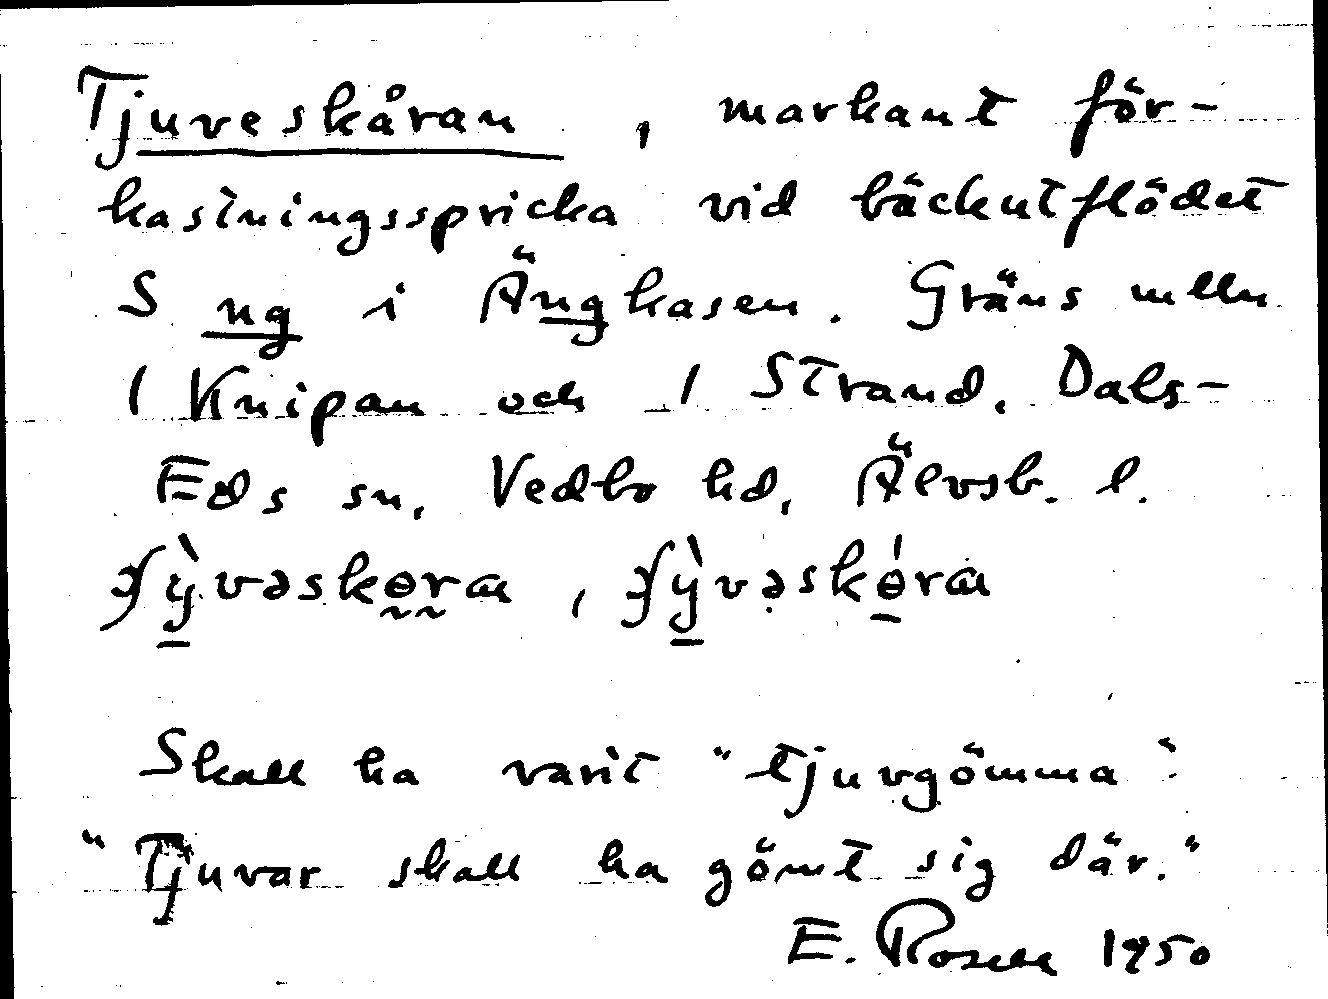 Tjuveskåran, markant för-
kastningsspricka vid bäckutflödet
S ng i Ängkasen. Gräns mlln
1 Knipan och 1 Strand. Dals-
Eds sn, Vedbo hd, Älvsb. l.
Skall ha varit "tjuvgömma".
"Tjuvar skall ha gömt sig där."
E. Rosell 1950